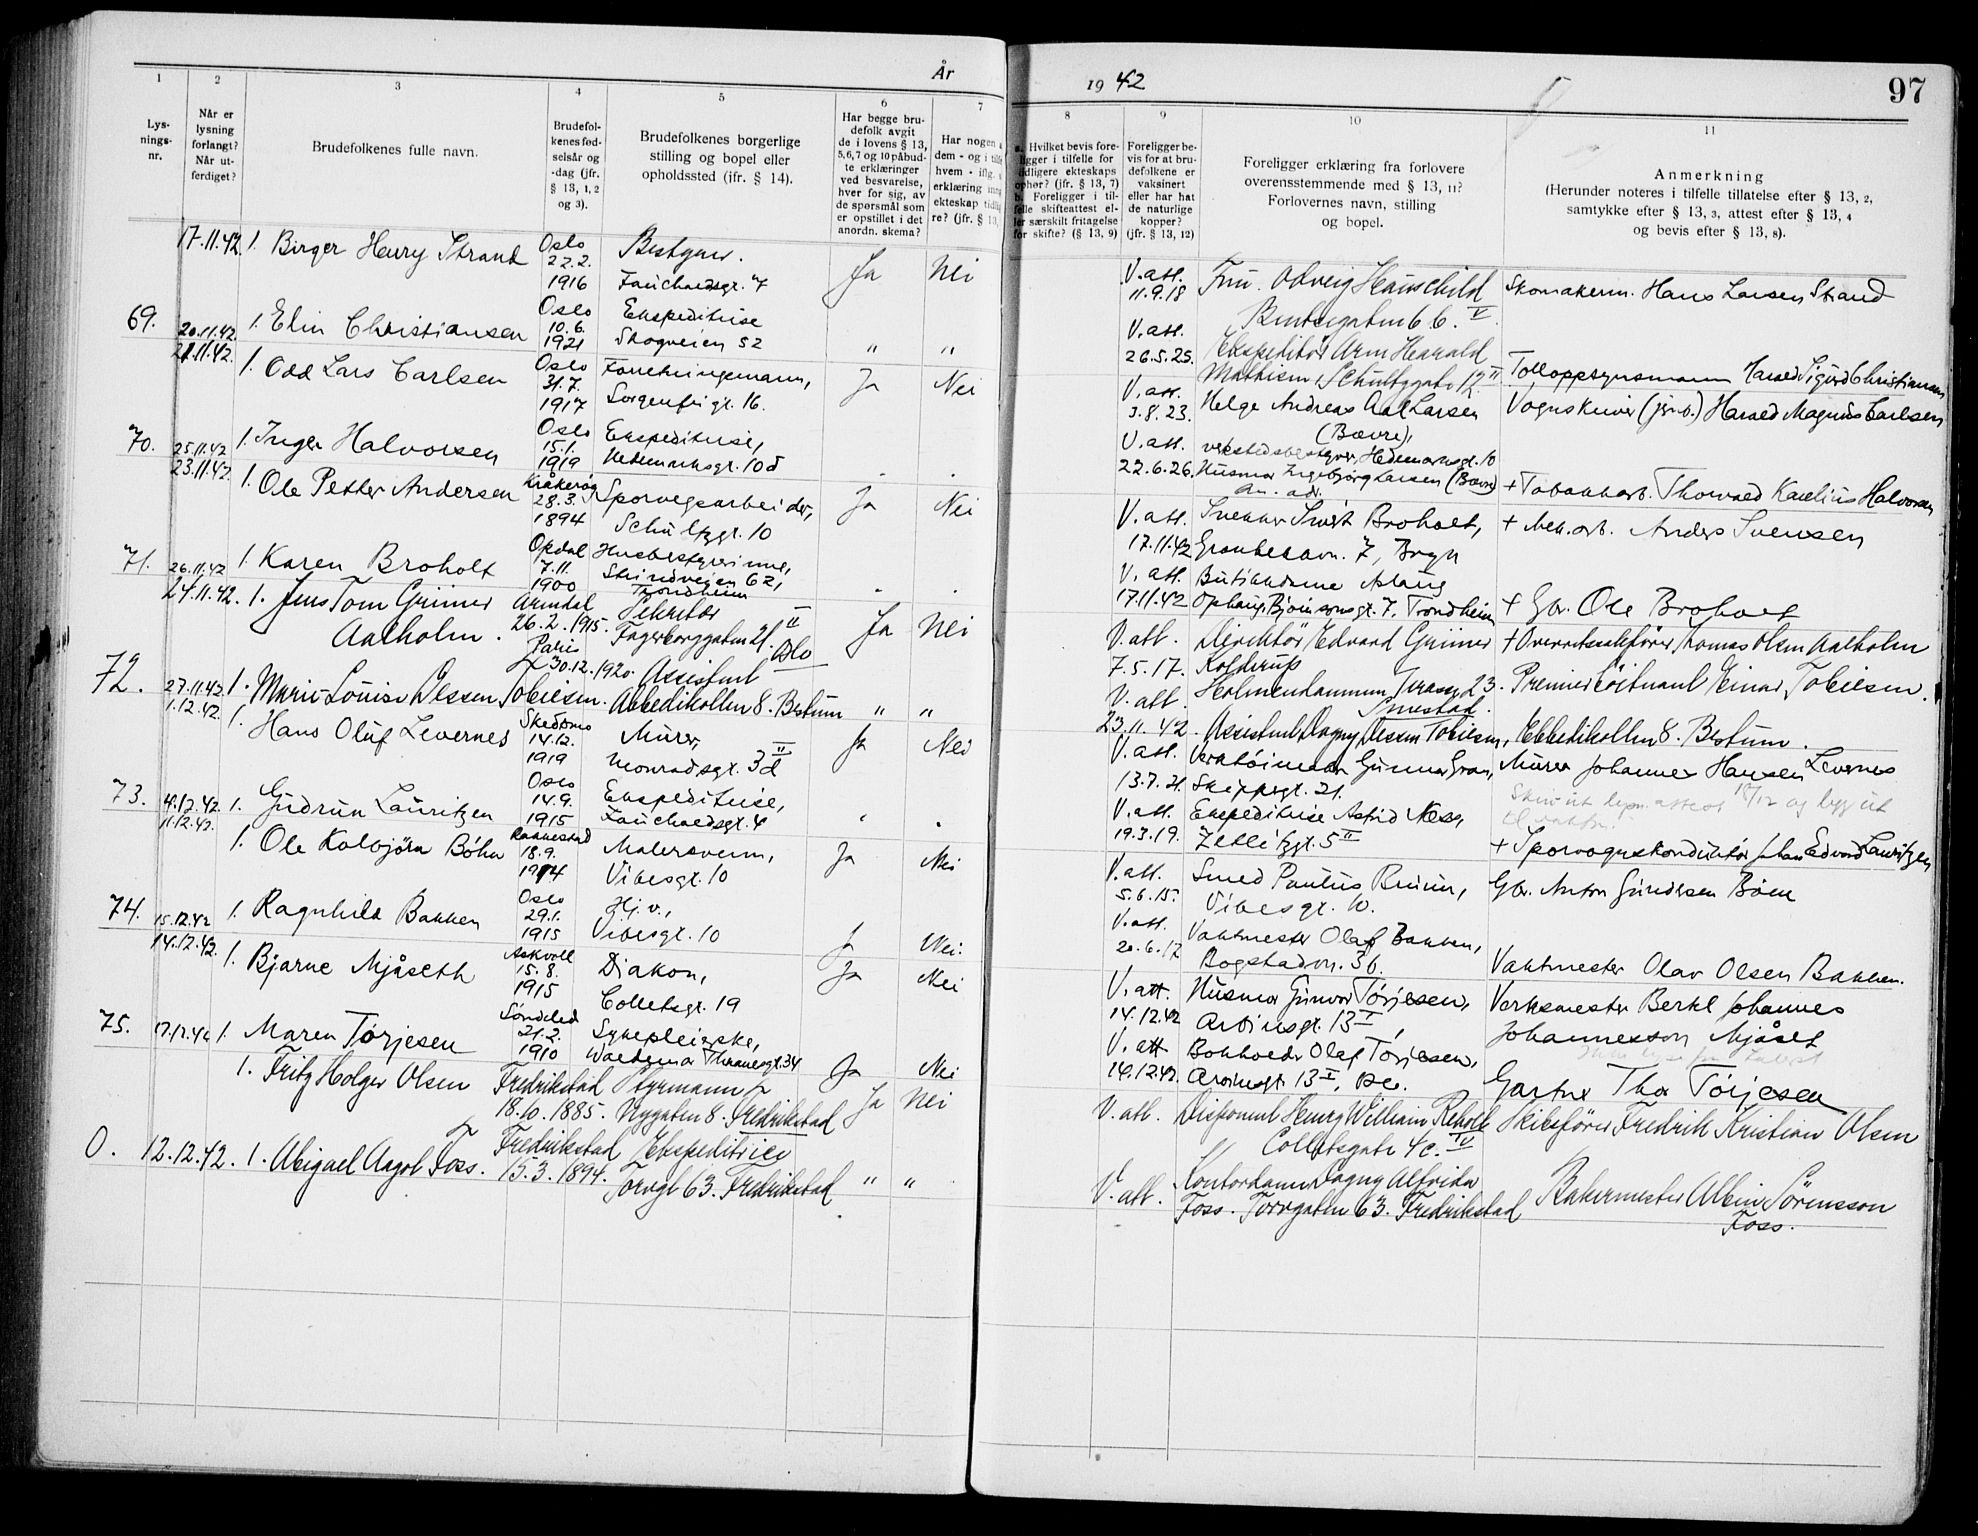 År
19 42
97
1
2
3
4
5
6
7
8
9
10
11
Lys-
nings-
nr.
Når er
lysning
forlangt?
Når ut-
ferdiget?
Brudefolkenes fulle navn.
Brudefol-
kenes fød-
selsår og
-dag (jfr.
§ 13, 1, 2
og 3).
Brudefolkenes borgerlige
stilling og bopel eller
opholdssted (jfr. § 14).
Har begge bru-
defolk avgit
de i lovens § 13,
5,6,7 og 10 påbud-
te erklæringer
ved besvarelse,
hver for sig, av
de spørsmål som
er opstillet i det
anordn. skema?
Har nogen a
dem - og i tilfe
hvem - iflg.
erklæring inng
ekteskap tidlig
re? (jfr. § 13,
a. Hvilket bevis fore-
ligger i tilfelle for
tidligere ekteskaps
ophør? (jfr. § 13, 7)
b. Foreligger i til-
felle skifteattest el-
ler særskilt fritagelse
for skifte? (§ 13, 9)
Foreligger be-
vis for at bru-
defolkene er
vaksinert
eller har hat
de naturlige
kopper?
(jfr. § 13, 12)
Foreligger erklæring fra forlovere
overensstemmende med § 13, 11?
Forlovernes navn, stilling
og bopel.
Anmerkning
(Herunder noteres i tilfelle tillatelse efter § 13, 2,
samtykke efter § 13, 3, attest efter § 13, 4
og bevis efter § 13, 8).
17.11.42. 1. Birger Henry Strand
Oslo
22.2.
1916
Bestyrer.
Fauchaldsgt. 4
Ja Nei
V. att.
11.9.18
Fru Odveig Hauschild
Skomakerm. Hans Larsen Strand
69. 20.11.42. 1. Elin Christiansen
Oslo
10.6.
1921
Ekspeditrise
Skogveien 52
" "
V. att.
26.5.25.
Ekspeditør Arm Harald
Mathisen, Schultzgate 12 II
Tolloppsynsmann Harald Sigurd Christiansen
21.11.42. 1. Odd Lars Carlsen
Oslo
31.7.
1917
Forretningsmann,
Sorgenfrigt. 16.
Ja Nei
V. att.
3.8.23.
Helge Andreas Aal Larsen
(Bævre),
verkstedsbestyrer, Hedemarksgt. 10
Vognskriver (jernb.) Harald Magnus Carlsen
70. 25.11.42 1. Inger Halvorsen
Oslo
15.1.
1919
Ekspeditrise,
Hedemarksgt. 10d
V. att.
22.6.26.
Husmor Ingebjørg Larsen (Bævre)
+ Tobakkarb. Thorvald Karelius Halvorsen
23.11.42. 1. Ole Petter Andersen
Kråkerøy
28.3.
1894
Sporvegsarbeider,
Schultzgt. 10
Ja Nei
V. att.
17.11.42
Snekker Sivert Broholt,
7, Bryn
+ Mek. arb. Anders Svensen
71. 26.11.42 1. Karen Broholt
Opdal
7.11.
1900
Husbestyrerinne,
Strindveien 62,
Trondheim
V. att.
17.11.42
Butikkdame Aslaug
Ophaug, Bjørnsonsgt. 7, Trondheim
+ Gbr. Ole Broholt
24.11.42. 1. Jens Tom Grüner
Aalholm.
Arendal
26.2.1915.
Sekretær
Fagerborggaten 21. II
Oslo
Ja Nei
V. att.
7.5.17.
Direktør Edvard Grüner
Kolderup
Holmendammen Terasse 23.
Smestad.
+ Overrettssakfører Thomas Olsen Aalholm
72. 27.11.42. 1. Marie-Louise Dessen Tobiesen.
Paris
30.12.1920.
Assistent
Abbedikollen 8. Bestum
" "
V. att.
23.11.42.
Assistent Dagny Dessen Tobiesen, Abbedikollen 8. Bestum.
Premierløitnant Einar Tobiesen.
1.12.42. 1. Hans Oluf Levernes
Skedsmo
14.12.
1919
Murer,
Monradsgt. 3d II
Ja Nei
V. att.
13.7.21.
Gunnar Gran,
Skippergt. 21.
Murer Johannes Hansen Levernes
73. 4.12.42. 1. Gudrun Lauritzen
Oslo
14.9.
1915
Ekspeditrise,
Fauchaldsgt. 4
V. att.
19.3.19.
Ekspeditrise Astrid Næss,
Zetlitzgt. 5 II
+ Sporvognskonduktør Johan Edvard Lauritzen
11.12.42. 1. Ole Kolbjörn Böhn
Rakkestad
18.9.
1914
Malersvenn,
Vibesgt. 10
Ja Nei
V. att.
5.6.15.
Smed Paulus Bruun,
Vibesgt. 10.
Gbr. Anton Gundersen Böen
74. 15.12.42 1. Ragnhild Bakken
Oslo
29.1.
1915
Hj. v.,
Vibesgt. 10
Nei.
V. att.
20.6.17
Vaktmester Olaf Bakken,
Bogstadvn. 36.
Vaktmester Olav Olsen Bakken.
14.12.42. 1. Bjarne Mjåseth
Askvoll
15.8.
1915
Diakon,
Colletsgt. 19
Ja Nei
V. att.
14.12.42
Husmor Gunvor Törjesen,
Arbinsgt. 13 I,
Verksmester Berkl Johannes
Johannesson Mjåset
75. 17.12.42 1. Maren Törjesen
Söndeled
21.2.
1910
Sykepleierske,
Waldemar Thranesgt. 34
Ja Nei
V. att
14.12.42.
Bokholder Olaf Torjesen,
Arbinsgt. 13 I,
Gartner Thor Törjesen
1. Fritz Holger Olsen
Fredrikstad
18.10.1885.
Styrmann
Nygaten 8. Fredrikstad
Ja Nei
V. att.
Disponent Henry William Reholt
Colletsgate 4c. IV
Skibsfører Fredrik Kristian Olsen
O. 12.12.42. 1. Abigael Aagot Foss.
Fredrikstad
15.3.1894.
Ekspeditrice
Torvgt 63. Fredrikstad
" "
V. att.
Kontordame Dagny Alfrida
Foss. Torvgaten 63. Fredrikstad
Bakermester Albin Sörensson
Foss.